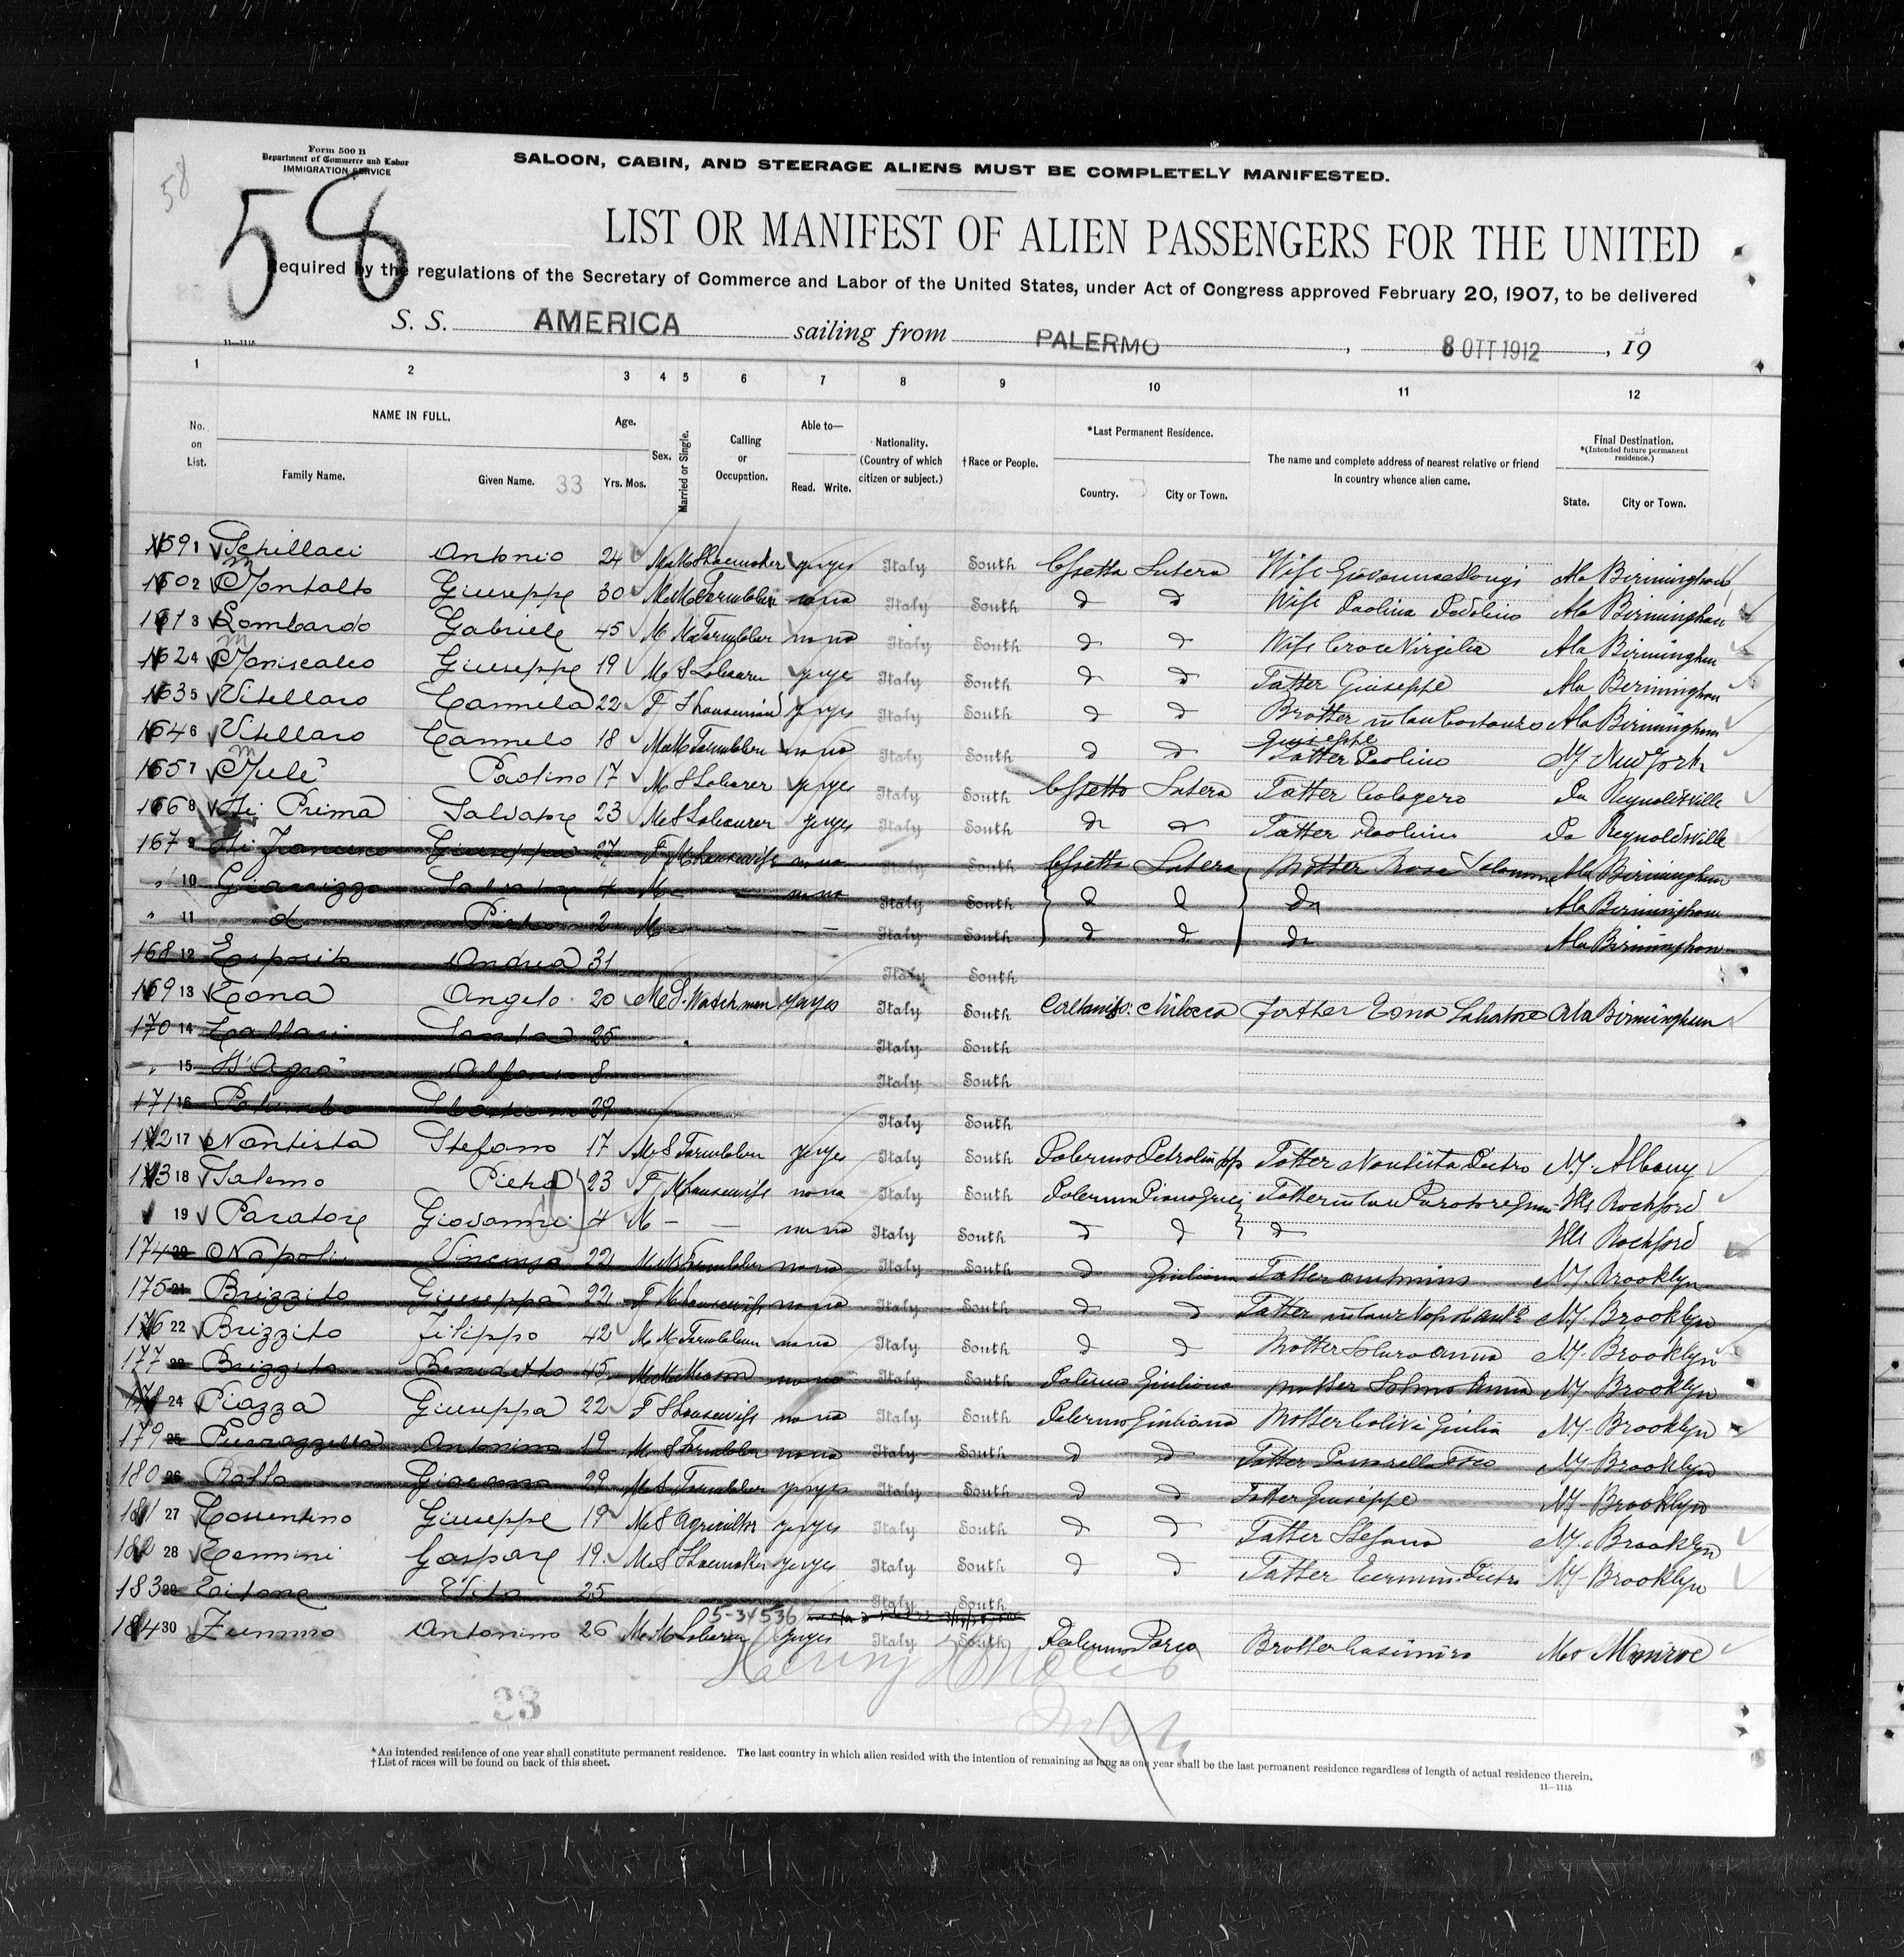 58
Form 500 B
Department of Commerce and Labor
IMMIGRATION SERVICE
58
SALOON, CABIN, AND STEERAGE ALIENS MUST BE COMPLETELY MANIFESTED.
LIST OR MANIFEST OF ALIEN PASSENGERS FOR THE UNITED
Required by the regulations of the Secretary of Commerce and Labor of the United States, under Act of Congress approved February 20, 1907, to be delivered
S. S. AMERICA sailing from PALERMO, 8 OTT 1912, 19
11—1115
1 2 3 4 5 6 7 8 9 10 11 12
No. on List. NAME IN FULL. Family Name. Given Name. 33 Age. Yrs. Mos. Sex. Married or Single. Calling or Occupation. Able to— Read. Write. Nationality. (Country of which citizen or subject.) †Race or People. *Last Permanent Residence. Country. City or Town. The name and complete address of nearest relative or friend in country whence alien came. Final Destination. *(Intended future permanent residence.) State. City or Town.
159 1 Schillaci Antonio 24 M M Shoemaker yes yes Italy South Cssetta Sutera Wife Ala Birmingham
160 2 Montalto Giuseppe 30 M M no no Italy South d d Wife Paolina Ala Birmingham
161 3 Lombardo Gabriele 45 M M no no Italy South d d Wife Croce Virgilia Ala Birmingham
162 4 Maniscalco Giuseppe 19 M S ye ye Italy South d d Father Giuseppe Ala Birmingham
163 5 Vitellaro Carmela 22 F S ye yes Italy South d d Brother in law Costanzo Giuseppe Ala Birmingham
164 6 Vitellaro Carmelo 18 M M no no Italy South d d Father Paolino NY New York
165 7 Mulè Paolino 17 M S Laborer ye yes Italy South Cssetta Sutera Father Calogero Pa Reynoldsville
166 8 Di Prima Salvatore 23 M S Labourer ye yes Italy South d d Father Paolino Pa Reynoldsville
167 9 Di Francesco Giuseppa 27 F M housewife no no Italy South Cssetta Sutera Mother Rosa Ala Birmingham
" 10 Giarrizzo Salvatore 4 M — no no Italy South d d do Ala Birmingham
" 11 d Pietro 2 M — — Italy South d d do Ala Birmingham
168 12 Esposito Andrea 31 Italy South
169 13 Tona Angelo 20 M S Watchman yes yes Italy South Milocca father Tona Salvatore Ala Birmingham
170 14 25 Italy South
" 15 D'Agro 8 Italy South
171 16 Palumbo 29 Italy South
172 17 Nantista Stefano 17 M S ye yes Italy South Palermo Father Pietro N.Y. Albany
173 18 Salemo Pietra 23 F M housewife no no Italy South Palermo Father in law Ills Rockford
19 Paratore Giovanni 4 M — — no no Italy South d d d Ills Rockford
174 20 Napoli Vincenzo 22 M M no no Italy South d Giuliana Father N.Y. Brooklyn
175 21 Brizzito Giuseppa 22 F M housewife no no Italy South d d Father in law N.Y. Brooklyn
176 22 Brizzito Filippo 42 M M no no Italy South d d Mother N.Y. Brooklyn
177 23 Brizzito Benedetto 45 M M Mason no no Italy South Palermo Giuliana Mother Anna N.Y. Brooklyn
178 24 Piazza Giuseppa 22 F S housewife no no Italy South Palermo Giuliana Mother Giulia N.Y. Brooklyn
179 25 Antonino 19 M S no no Italy South d d Father N.Y. Brooklyn
180 26 Giacomo 29 M S yes yes Italy South d d Father Giuseppe N.Y. Brooklyn
181 27 Giuseppe 19 M S yes yes Italy South d d Father Stefano N.Y. Brooklyn
182 28 Gaspare 19 M S Shoemaker ye yes Italy South d d Father Pietro N.Y. Brooklyn
183 29 Titone Vito 25 Italy South
5-34536
184 30 Zummo Antonino 26 M M Laborer yes yes Italy South Palermo Parco Brother Casimiro Monroe
33
*An intended residence of one year shall constitute permanent residence. The last country in which alien resided with the intention of remaining as long as one year shall be the last permanent residence regardless of length of actual residence therein.
†List of races will be found on back of this sheet.
11—1115